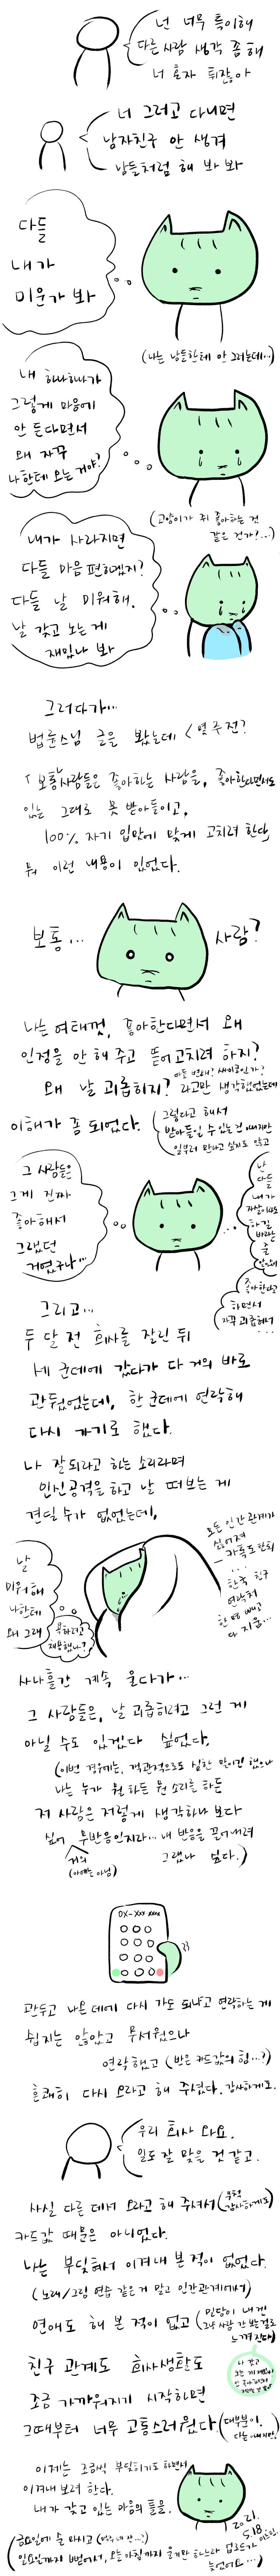 넌 너무 특이해
다른 사람 생각 좀 해
너 혼자 튀잖아
너 그러고 다니면
남자친구 안 생겨
남들처럼 해 봐 봐
다들
내가
미운가 봐
(나는 남들한테 안 그러는데..)
내 하나하나가
그렇게 마음에
안 든다면서
왜 자꾸
나한테 오는 거야?
(고양이가 쥐 좋아하는 것
같은 건가?...)
내가 사라지면
다들 마음 편하겠지?
다들 날 미워해.
날 갖고 노는 게
재밌나 봐
그러다가...
법륜스님 글을 봤는데 < 몇 주 전?
「보통 사람들은 좋아하는 사람을, 좋아한다면서도
있는 그대로 못 받아들이고,
100% 자기 입맛에 맞게 고치려 한다」
뭐 이런 내용이 있었다.
보통... 사람?
나는 여태껏, 좋아한다면서 왜
인정을 안 해 주고 뜯어고치려 하지?
왜 날 괴롭히지? 라고만 생각했었는데
이해가 좀 되었다.
그렇다고 해서
받아들일 수 있는 건 아니지만
일부러 만나고 싶지도 않고
그 사람들은
그게 진짜
좋아해서
그랬던
거였구나...
난
다들
내가
하길
바라는
줄
알았어
좋아한다고
하면서
자꾸 괴롭혀서
그리고...
두 달 전 회사를 잘린 뒤
세 군데에 갔다가 다 거의 바로
관뒀었는데, 한 군데에 연락해
다시 가기로 했다.
나 잘되라고 하는 소리라며
인신공격을 하고 날 떠보는 게
견딜 수가 없었는데,
날
미워해
나한테
왜 그래
모든 인간관계가
싫어져
카톡도 탈퇴
....
한국 친구
연락처
한 명 빼고
다 지움...
사나흘간 계속 울다가...
그 사람들은, 날 괴롭히려고 그런 게
아닐 수도 있겠다 싶었다.
(이번 경우에는, 객관적으로 심한 말이긴 했으나
나는 누가 뭔 하든 뭔 소리를 하든
저 사람은 저렇게 생각하나 보다
싶어 무반응인지라... 내 반응을 끌어내려
거의
(아예는 아님)
그랬나 싶다.)
0X-XXX-XXXX
관두고 나온 데에 다시 가도 되냐고 연락하는 게
쉽지는 않았고 무서웠으나
연락했고 (반은 카드값의 힘...?)
흔쾌히 다시 오라고 해 주셨다. 감사하게도.
우리 회사 와요.
일도 잘 맞을 것 같고.
사실 다른 데서 오라고 해 주셔서 (무척 감사하게도)
카드값 때문은 아니었다.
나는 부딪혀서 이겨내 본 적이 없었다.
(노래/그림 연습 같은 거 말고 인간관계에서)
연애도 해 본 적이 없고
친구 관계도 회사생활도
조금 가까워지기 시작하면
그때부터 너무 고통스러웠다
이제는 조금씩 부딪히기도 하면서
이겨내 보려 한다.
내가 갖고 있는 마음의 틀을.
2021.
5.18.